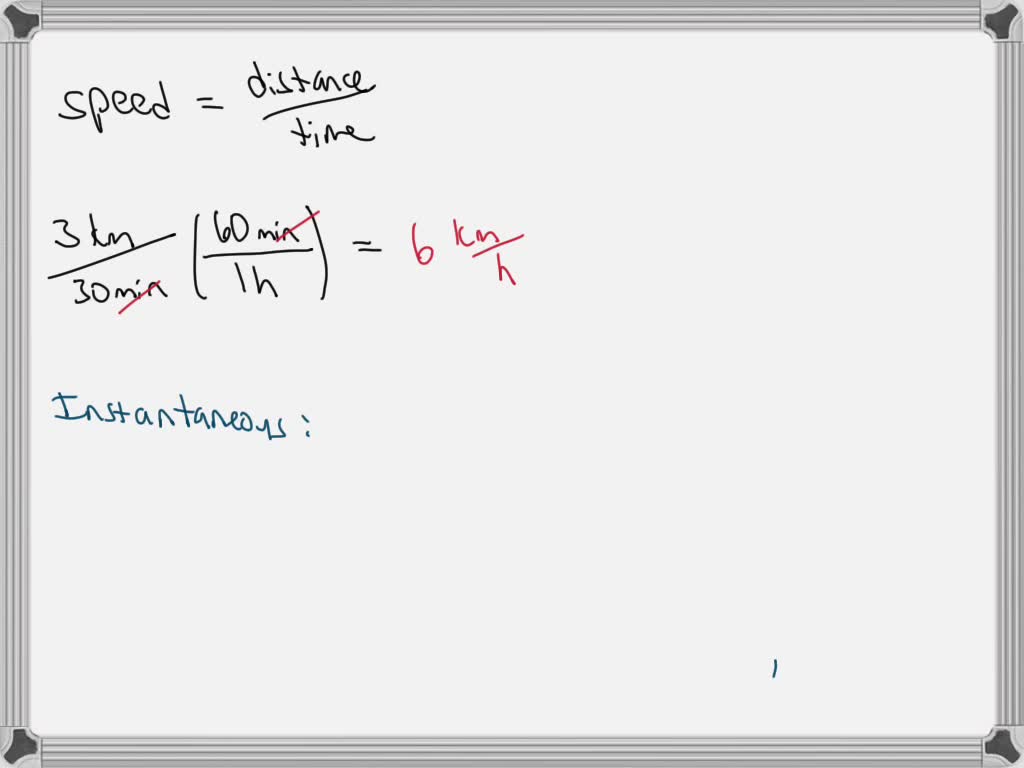 speed = distance/time
3 km/30 min (60 min/1h) = 6 km/h
Instantaneous: